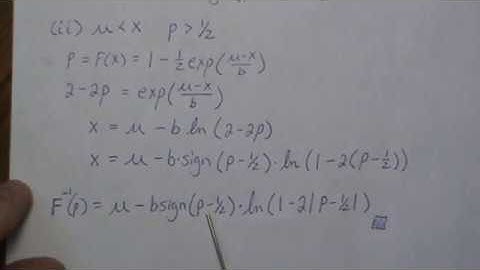 (ii) μ < x   p > 1/2
p = F(x) = 1 - 1/2 exp(μ-x/b)
2-2p = exp(μ-x/b)
x = μ - b ln(2-2p)
x = μ - b·sign(p-1/2)·ln(1-2(p-1/2))
F⁻¹(p) = μ - bsign(p-1/2)·ln(1-2|p-1/2|)